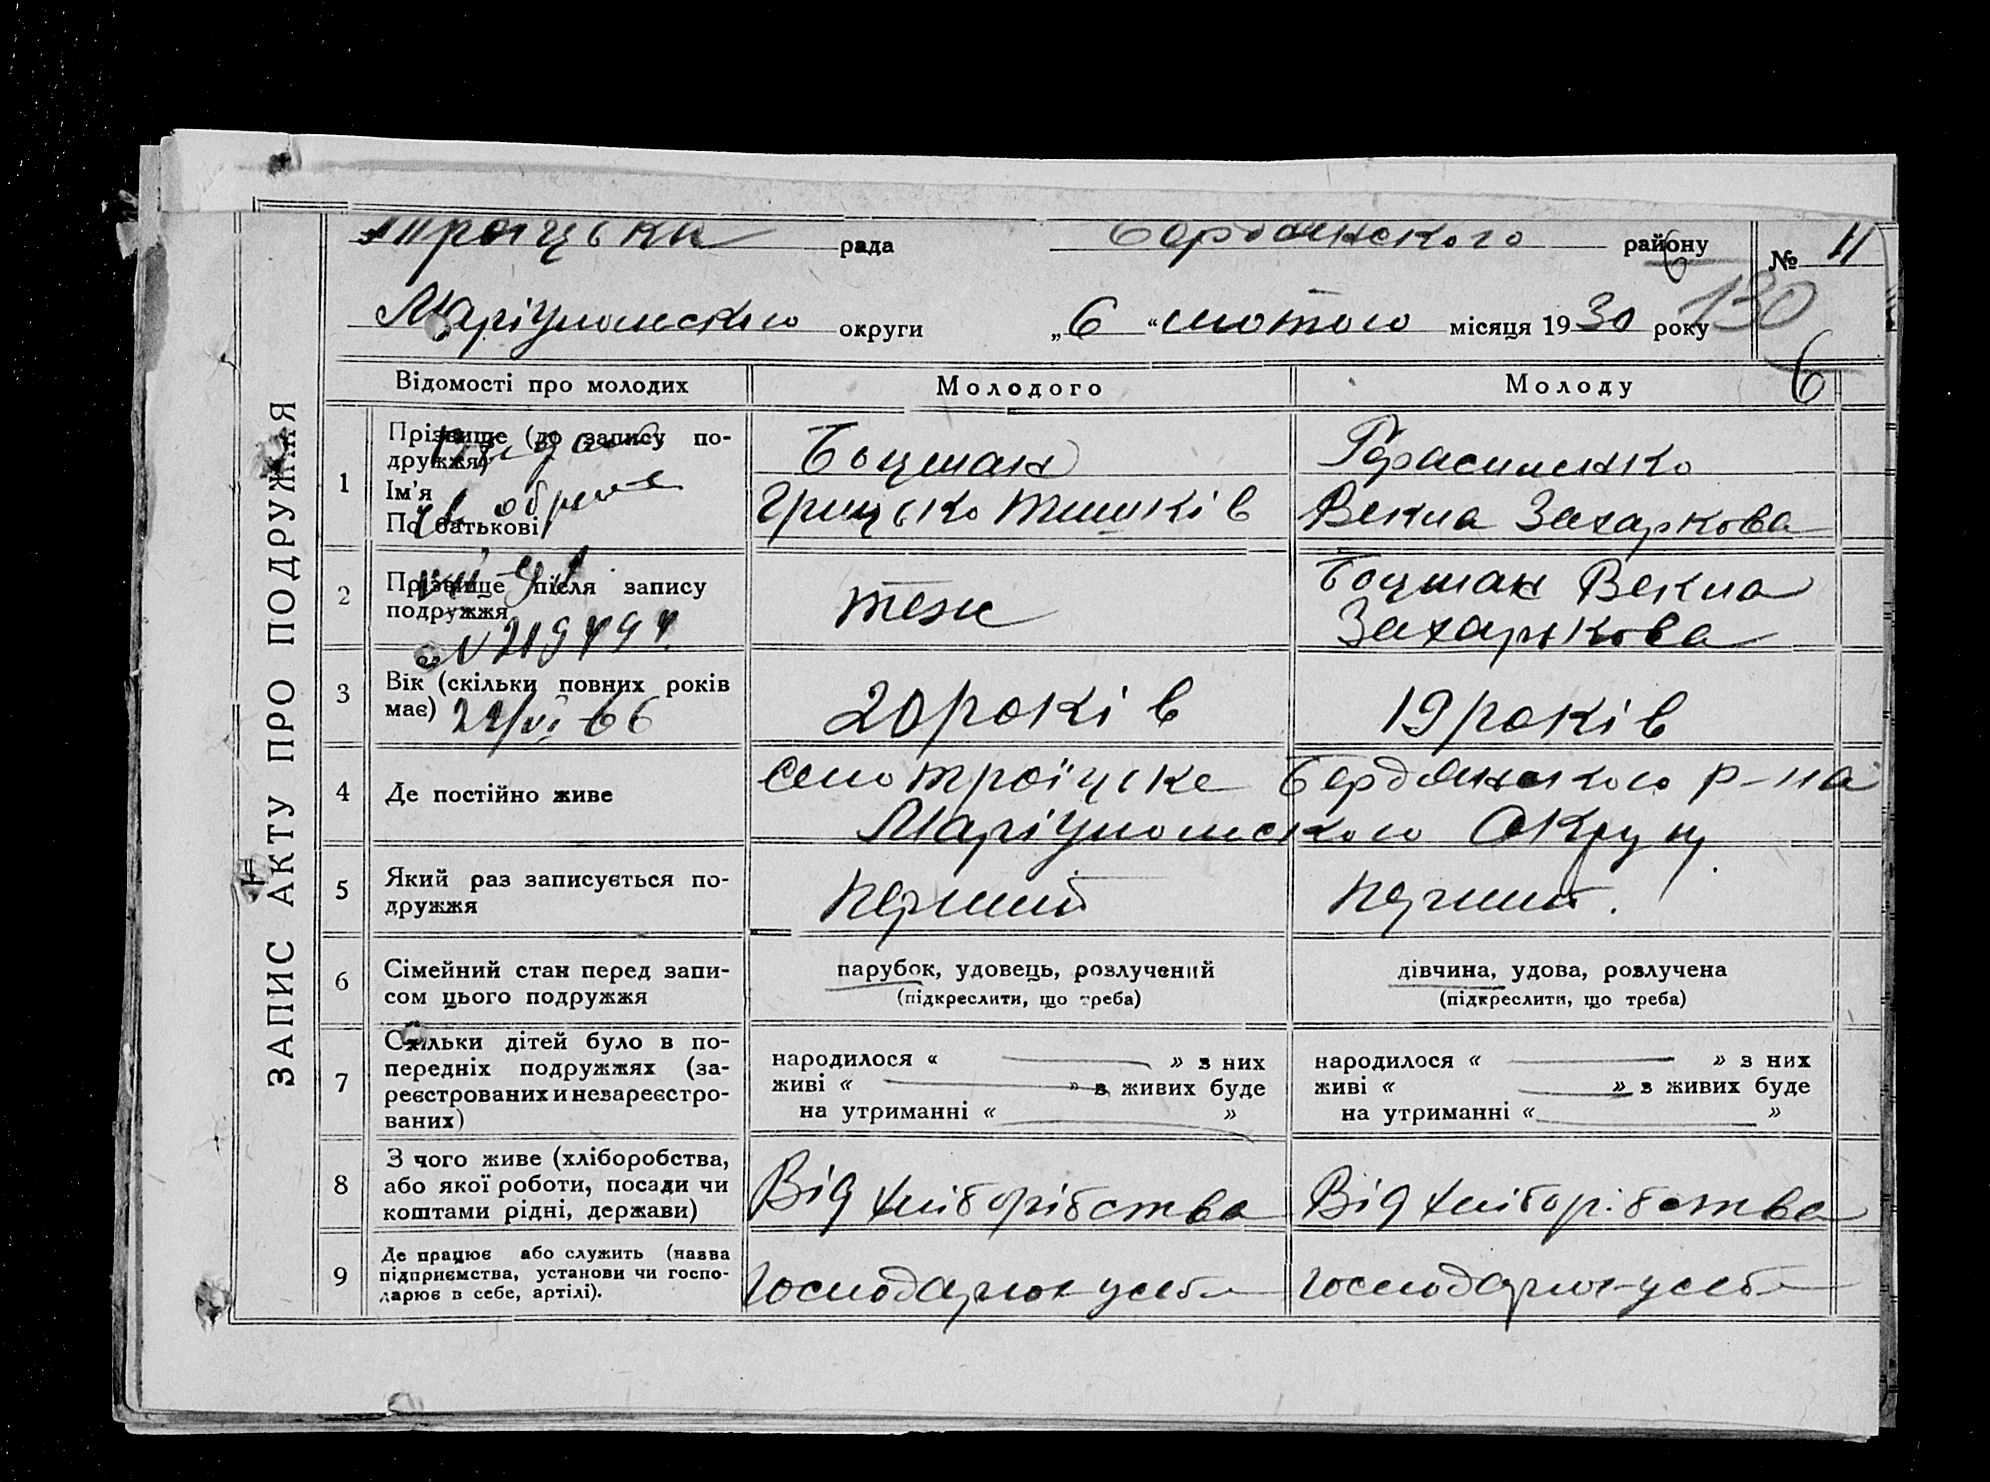 ЗАПИС АКТУ ПРО ПОДРУЖЖЯ
Троіцька рада Бердянського району № 11
Маріупольского округи „6“ лютого місяця 1930 року 130
6
Відомості про молодих Молодого Молоду
1 Прізвище (до запису по-
дружжя)
Ім'я
По батькові
Боцман
Грицько Тишків
Герасименко
Векла Захаркова
2 Прізвище після запису
подружжя
теж
Боцман Векла
Захарькова
№ 219494
3 Вік (скільки повних років
має)
20 років 19 років
22/VI-66
4 Де постійно живе
Село Троїцьке Бердянського р-на
Маріупольского Округи
5 Який раз записується по-
дружжя
перший перший.
6 Сімейний стан перед запи-
сом цього подружжя
парубок, удовець, розлучений
(підкреслити, що треба)
дівчина, удова, розлучена
(підкреслити, що треба)
7 Скільки дітей було в по-
передніх подружжях (за-
реєстрованих и незареєстро-
ваних)
народилося « » з них
живі « » з живих буде
на утриманні « »
народилося « » з них
живі « » з живих буде
на утриманні « »
8 З чого живе (хліборобства,
або якої роботи, посади чи
коштами рідні, держави)
Від хліборібства Від хліборібства
9 Де працює або служить (назва
підприємства, установи чи госпо-
дарює в себе, артілі).
Господарює усебе господарює усебе